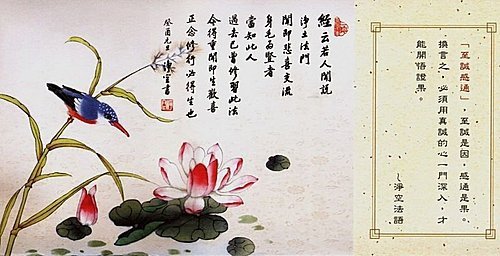 「至誠感通」，至誠是因，感通是果。
換言之，必須用真誠的心一門深入，才
能開悟證果。
～淨空法語
經云若人聞說
淨土法門
聞即悲喜交流
身毛為豎者
當知此人
過去已曾修習此法
今得重聞即生歡喜
正念修行必得生也
淨空書